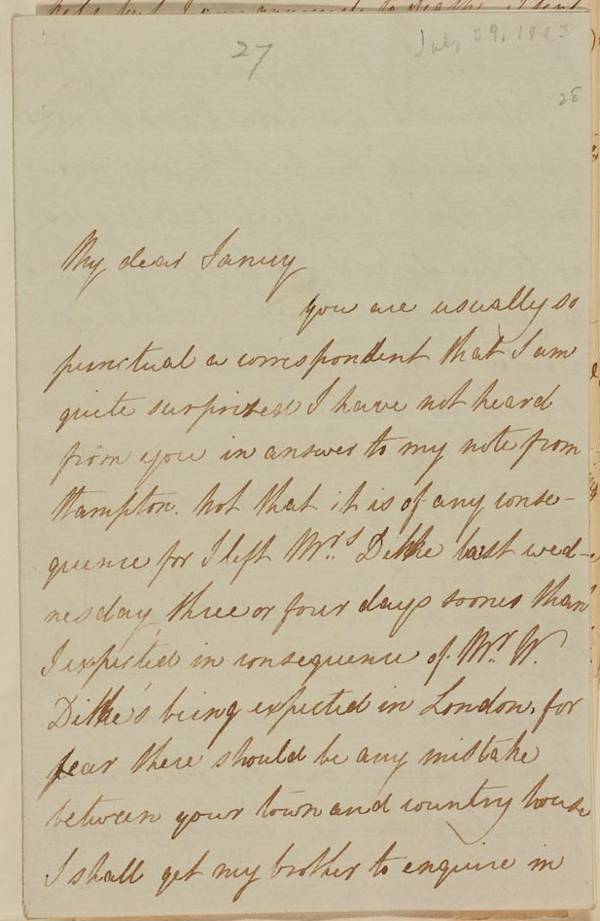 27
July 29, 1823
28
My dear Fanny
you are usually so
punctual a correspondent that I am
quite surprised I have not heard
from you in answer to my note from
Hampton. Not that it is of any conse-
quence for I left Mrs. Dilke last wed-
nesday, three or four days sooner than
I expected in consequence of Mr. W.
Dilke's being expected in London. for
fear there should be any mistake
between your town and country house
I shall get my brother to enquire in